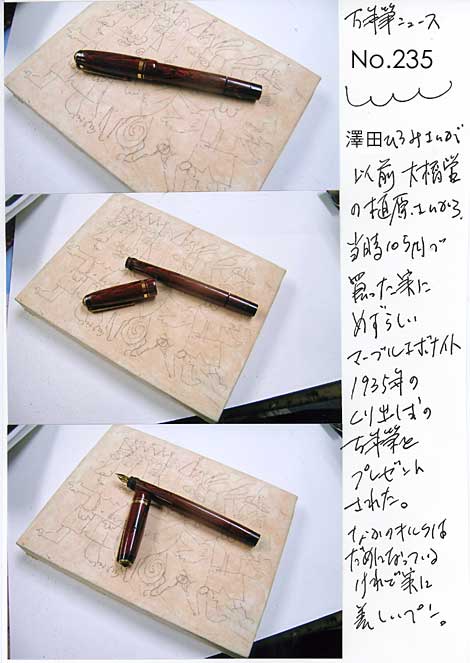 万年筆ニュース
No.235
澤田ひろみさんが
以前 大橋堂
の植原さんから、
当時10万円で
買った実に
めずらしい
マーブルエボナイト
1935年の
くり出し式の
万年筆を
プレゼント
された。
なかのキルクは
だめになっている
けれど実に
美しいペン。